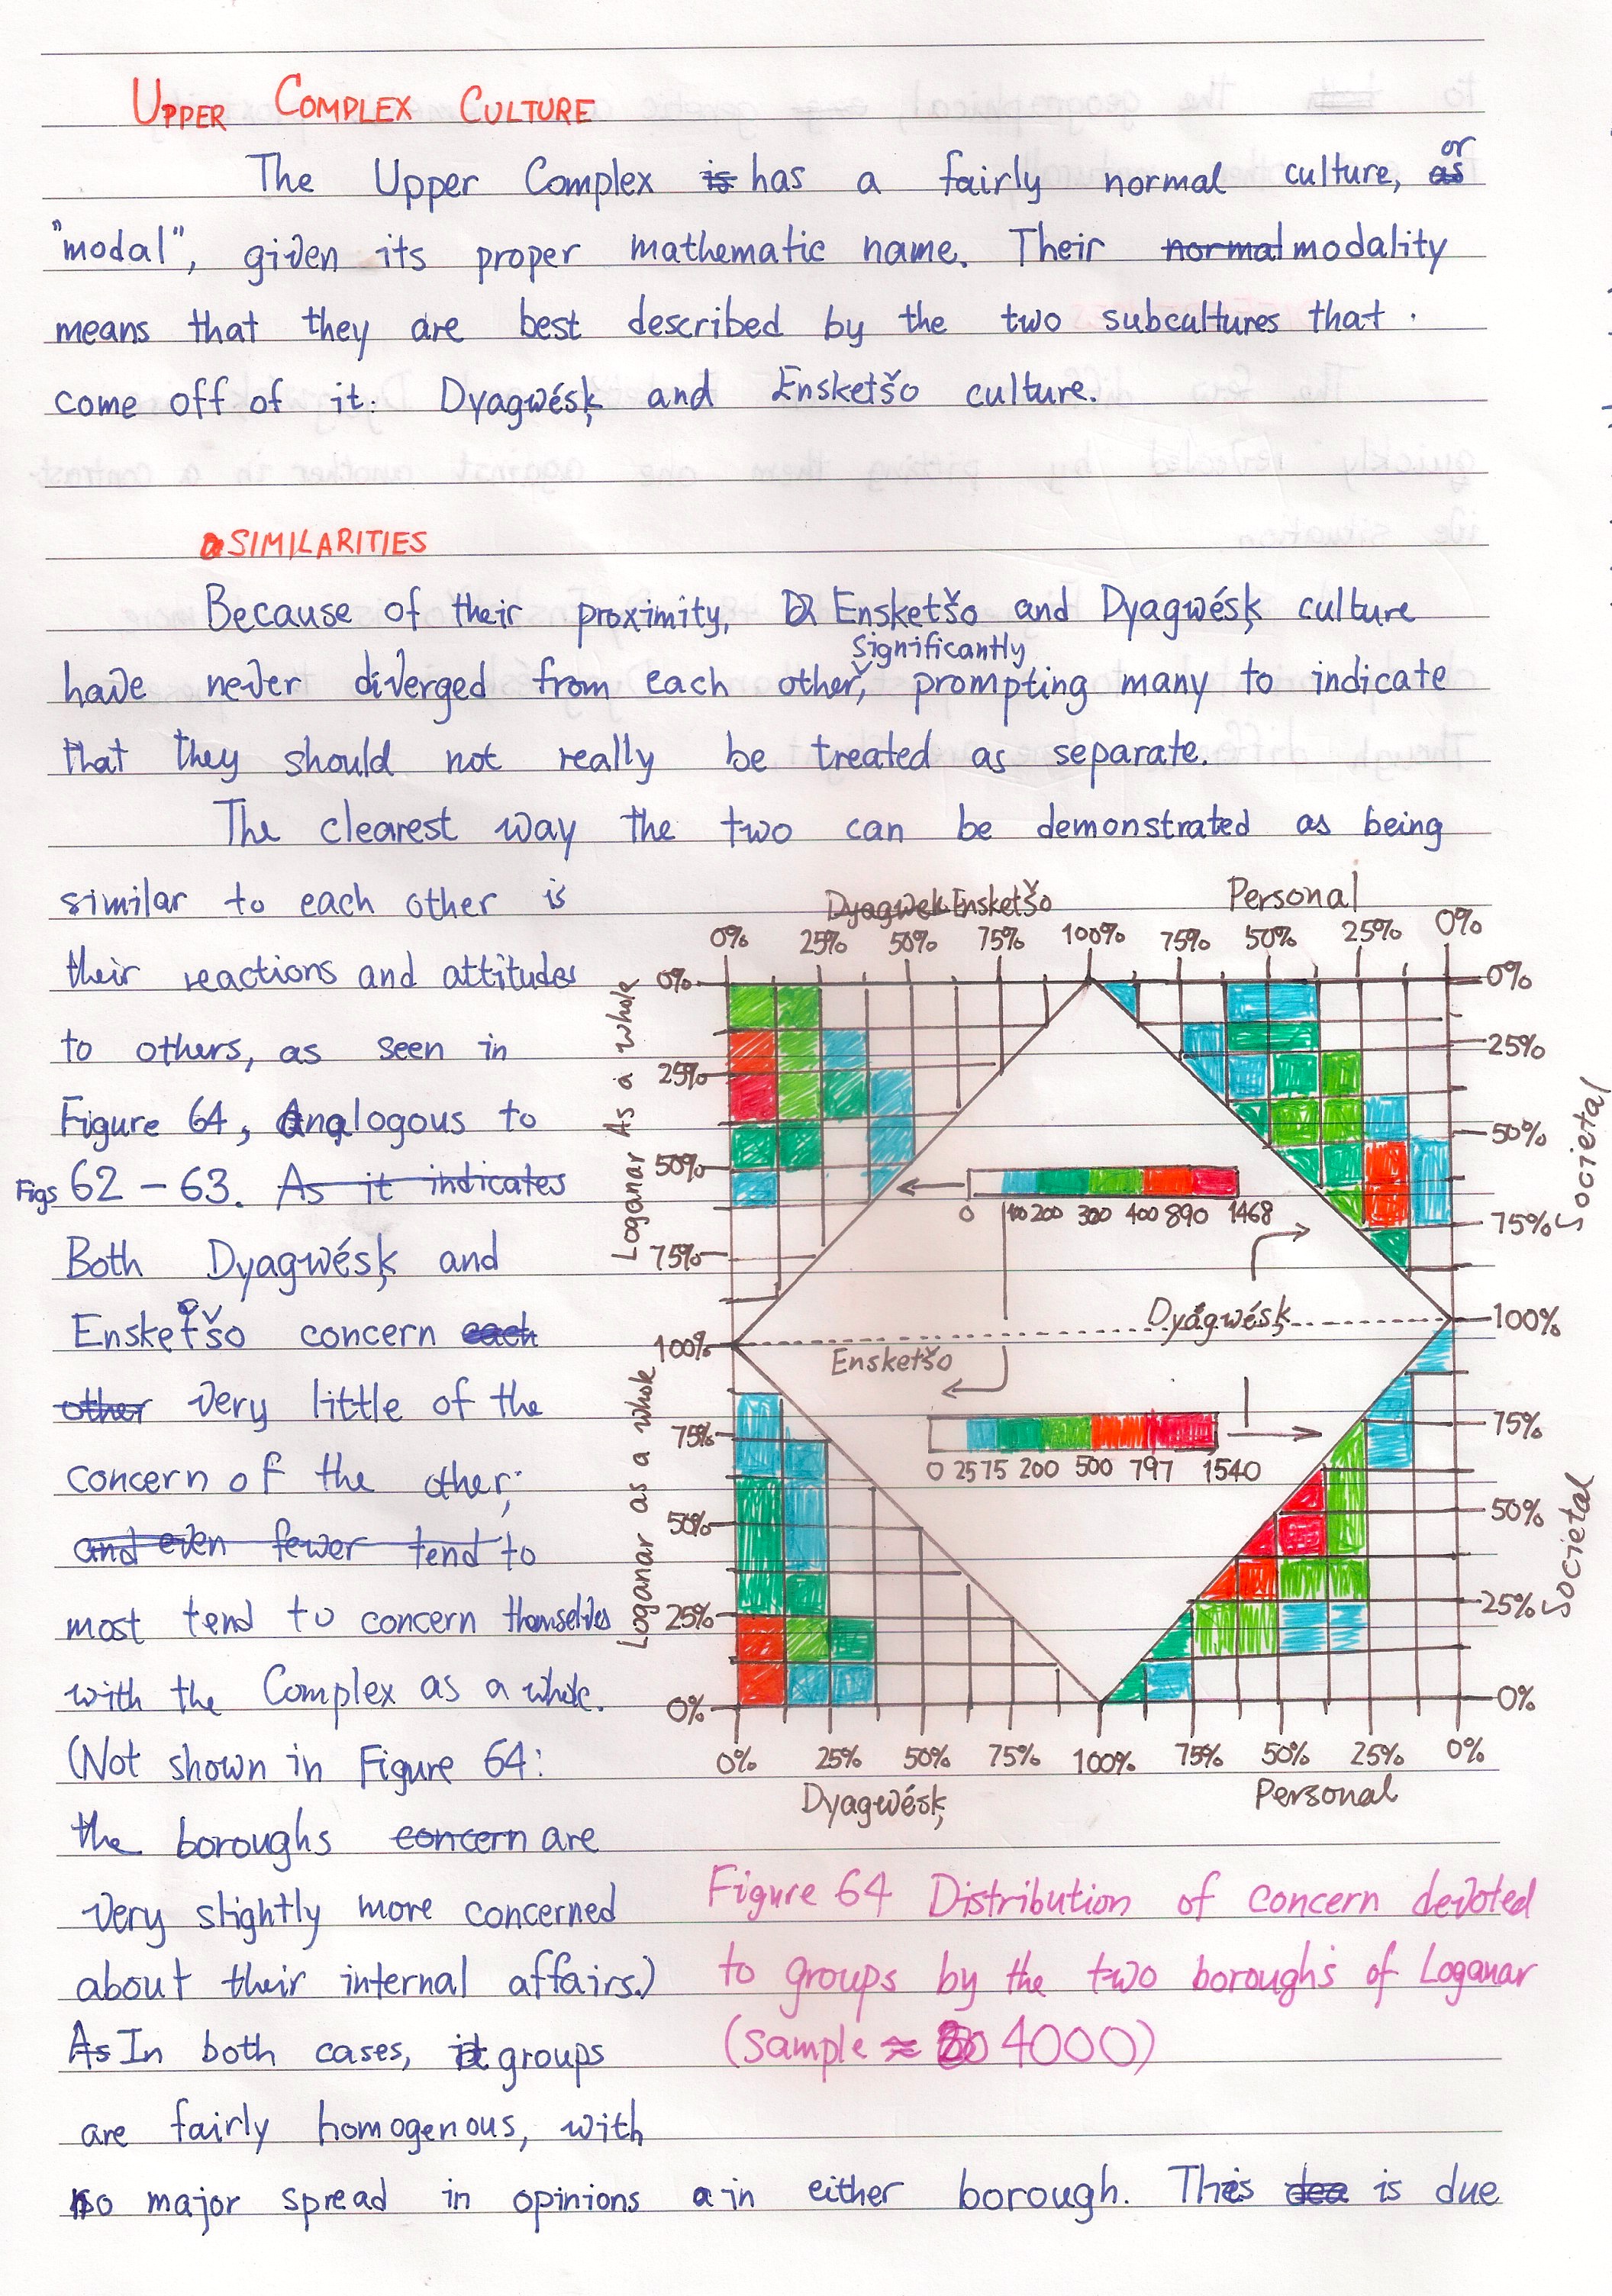 UPPER COMPLEX CULTURE
The Upper Complex is has a fairly normal culture, as or
"modal", given its proper mathematic name. Their normal modality
means that they are best described by the two subcultures that
come off of it: Dyagwésķ and Ensketšo culture.
SIMILARITIES
Because of their proximity, Ensketšo and Dyagwésķ culture
have never diverged from each other, significantly prompting many to indicate
that they should not really be treated as separate.
The clearest way the two can be demonstrated as being
similar to each other is
their reactions and attitudes
to others, as seen in
Figure 64, Analogous to
Figs 62 – 63. As it indicates
Both Dyagwésķ and
Ensketšo concern each
other very little of the
concern of the other;
and even fewer tend to
most tend to concern themselves
with the Complex as a whole.
(Not shown in Figure 64:
the boroughs concern are
very slightly more concerned
about their internal affairs.)
As In both cases, it groups
are fairly homogenous, with
no major spread in opinions a in either borough. This is due
Dyagwek Ensketšo
Personal
0% 25% 50% 75% 100% 75% 50% 25% 0%
Loganar As a whole
0%
25%
50%
75%
100%
0%
25%
50%
75%
100%
Societal
0 100 200 300 400 890 1468
Dyagwésķ
Ensketšo
0 25 75 200 500 797 1540
Loganar as a whole
75%
50%
25%
0%
75%
50%
25%
0%
Societal
0% 25% 50% 75% 100% 75% 50% 25% 0%
Dyagwésķ
Personal
Figure 64 Distribution of concern devoted
to groups by the two boroughs of Loganar
(sample ≈ 4000)